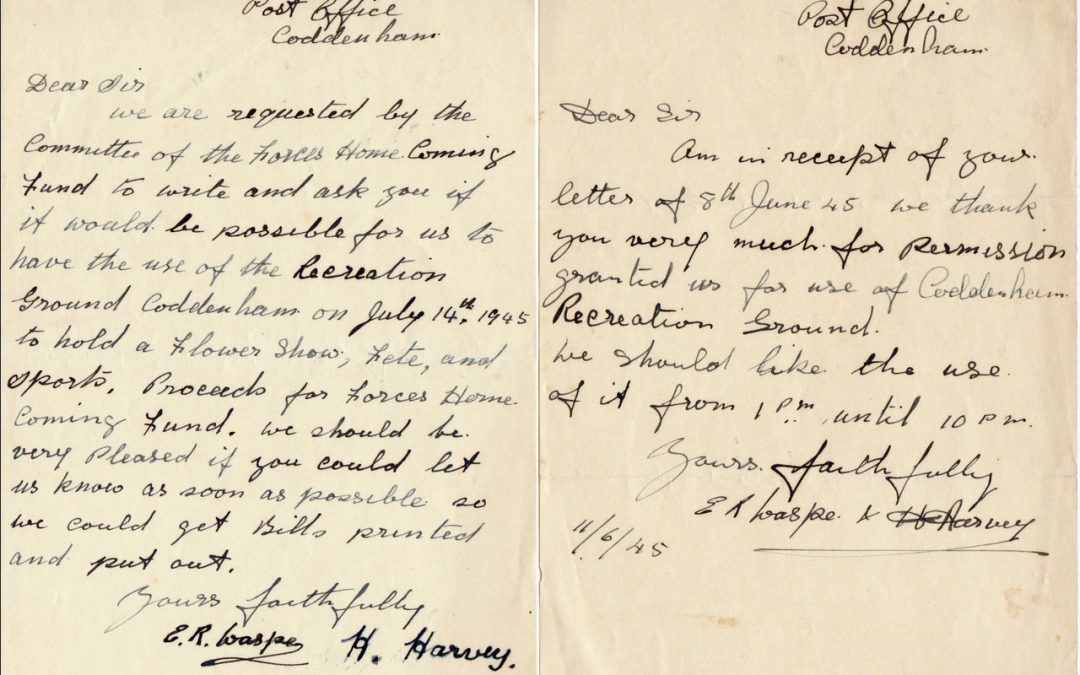 Post Office
Coddenham
Dear Sir
we are requested by the
Committee of the Forces Home Coming
Fund to write and ask you if
it would be possible for us to
have the use of the Recreation
Ground Coddenham on July 14th. 1945
to hold a Flower Show, Fete, and
Sports. Proceeds for Forces Home
Coming Fund. we should be
very Pleased if you could let
us know as soon as possible so
we could get Bills printed
and put out.
Yours faithfully
E. R. Waspe H. Harvey.
Post Office
Coddenham
Dear Sir
Am in receipt of your
letter of 8th June 45 we thank
you very much for permission
granted us for use of Coddenham
Recreation Ground.
we should like the use
of it from 1 Pm until 10 Pm.
Yours faithfully
E R Waspe & H Harvey
11/6/45